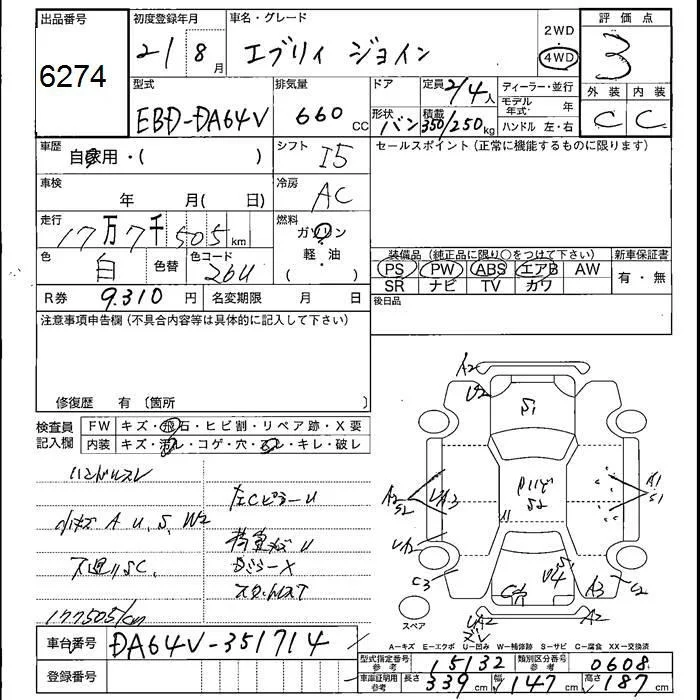 出品番号 初度登録年月 車名・グレード 2WD 評価点
6274 21/8月 エブリィ ジョイン 4WD 3
型式 排気量 ドア 定員 2/4人 ディーラー・並行 外装 内装
モデル年式: 年
EBD-DA64V 660 CC 形状 バン 積載 350/250kg ハンドル 左・右 C C
車歴 自家用・( ) シフト I5 セールスポイント(正常に機能するものに限ります)
車検 年 月( 日) 冷房 AC
走行 17万7千505km 燃料 ガソリン
軽・油
( )
色 白 色替 色コード 26U 装備品(純正品に限り○をつけて下さい) 新車保証書
PS PW ABS エアB AW 有・無
SR ナビ TV カワ
R券 9.310円 名変期限 月 日 後日品
注意事項申告欄(不具合内容等は具体的に記入して下さい)
修復歴 有〔箇所 〕
検査員記入欄 FW キズ・飛石・ヒビ割・リペア跡・X要
内装 キズ・汚レ・コゲ・穴・スレ・キレ・破レ
ハンドルスレ
小キズ A U, S, W2
左CピラーU
荷室キズ U
下廻りSC.
177505/km
A2
U2
S1
A2
S2
A1
S1
S2
U4
S
C3
A3
C2
A2
スペア
A-キズ E-エクボ U-凹み W-補修跡 S-サビ C-腐食 XX-交換済
車台番号 DA64V-351714
型式指定番号 参考 15132 類別区分番号 参考 0608
登録番号
車庫証明用 参考 長さ 339cm 幅 147cm 高さ 187cm